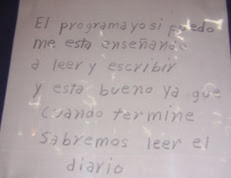 El programa yo si puedo
me esta enseñando
a leer y escribir
y esta bueno ya que
cuando termine
sabremos leer el
diario